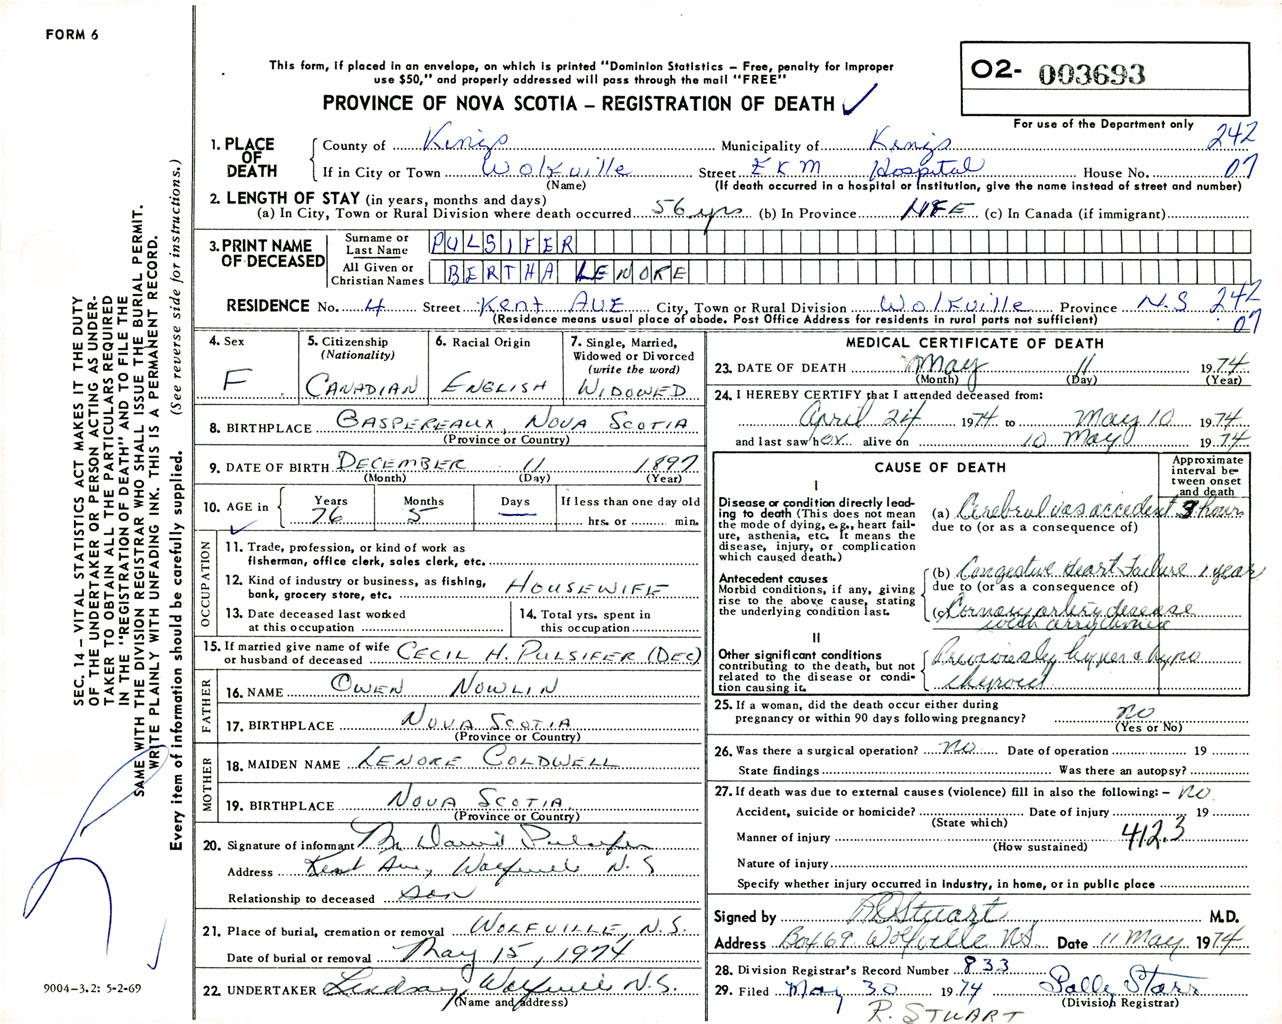 FORM 6
This form, if placed in an envelope, on which is printed "Dominion Statistics – Free, penalty for improper
use $50," and properly addressed will pass through the mail "FREE"
PROVINCE OF NOVA SCOTIA – REGISTRATION OF DEATH ✓
02- 003693
For use of the Department only
1. PLACE OF DEATH
County of Kings Municipality of Kings 242
If in City or Town Wolfville Street EKM Hospital House No. 07
(Name) (If death occurred in a hospital or institution, give the name instead of street and number)
2. LENGTH OF STAY (in years, months and days)
(a) In City, Town or Rural Division where death occurred 56 yrs (b) In Province LIFE (c) In Canada (if immigrant)
3. PRINT NAME OF DECEASED
Surname or Last Name PULSIFER
All Given or Christian Names BERTHA LENORE
RESIDENCE No. 4 Street Kent AVE City, Town or Rural Division Wolfville Province N.S 242
(Residence means usual place of abode. Post Office Address for residents in rural parts not sufficient) 07
4. Sex F
5. Citizenship (Nationality) CANADIAN
6. Racial Origin ENGLISH
7. Single, Married, Widowed or Divorced (write the word) WIDOWED
8. BIRTHPLACE GASPEREAUX, NOVA SCOTIA
(Province or Country)
9. DATE OF BIRTH DECEMBER 11 1897
(Month) (Day) (Year)
10. AGE in Years 76 Months 5 Days — If less than one day old hrs. or min.
✓
OCCUPATION
11. Trade, profession, or kind of work as
fisherman, office clerk, sales clerk, etc.
12. Kind of industry or business, as fishing,
bank, grocery store, etc. HOUSEWIFE
13. Date deceased last worked
at this occupation
14. Total yrs. spent in
this occupation
15. If married give name of wife
or husband of deceased CECIL H. PULSIFER (DEC)
FATHER
16. NAME OWEN NOWLIN
17. BIRTHPLACE NOVA SCOTIA
(Province or Country)
MOTHER
18. MAIDEN NAME LENORE COLDWELL
19. BIRTHPLACE NOVA SCOTIA
(Province or Country)
20. Signature of informant David Pulsifer
Address Kent Ave, Wolfville N.S
Relationship to deceased son
21. Place of burial, cremation or removal WOLFVILLE, N.S.
Date of burial or removal May 15, 1974
22. UNDERTAKER Lindsay, Wolfville N.S.
(Name and address)
MEDICAL CERTIFICATE OF DEATH
23. DATE OF DEATH May 11 1974
(Month) (Day) (Year)
24. I HEREBY CERTIFY that I attended deceased from:
April 24 1974 to May 10 1974
and last saw her alive on 10 May 1974
CAUSE OF DEATH
Approximate interval between onset and death
I
Disease or condition directly leading to death (This does not mean the mode of dying, e.g., heart failure, asthenia, etc. It means the disease, injury, or complication which caused death.)
(a) Cerebral vas accident 9 hours
due to (or as a consequence of)
Antecedent causes
Morbid conditions, if any, giving rise to the above cause, stating the underlying condition last.
(b) Congestive Heart Failure 1 year
due to (or as a consequence of)
(c) Coronary artery disease
with arrythmia
II
Other significant conditions
contributing to the death, but not related to the disease or condition causing it.
Previously hyper & hypo
thyroid
25. If a woman, did the death occur either during
pregnancy or within 90 days following pregnancy? no
(Yes or No)
26. Was there a surgical operation? no Date of operation 19
State findings Was there an autopsy?
27. If death was due to external causes (violence) fill in also the following: – no
Accident, suicide or homicide? Date of injury 19
(State which)
Manner of injury 412.3
(How sustained)
Nature of injury
Specify whether injury occurred in industry, in home, or in public place
Signed by RD Stuart M.D.
Address Box 69 Wolfville NS. Date 11 May 1974
28. Division Registrar's Record Number 833
29. Filed May 30 1974 Sally Starr
(Division Registrar)
R. STUART
SEC. 14 – VITAL STATISTICS ACT MAKES IT THE DUTY
OF THE UNDERTAKER OR PERSON ACTING AS UNDER-
TAKER TO OBTAIN ALL THE PARTICULARS REQUIRED
IN THE "REGISTRATION OF DEATH" AND TO FILE THE
SAME WITH THE DIVISION REGISTRAR WHO SHALL ISSUE THE BURIAL PERMIT.
WRITE PLAINLY WITH UNFADING INK. THIS IS A PERMANENT RECORD.
Every item of information should be carefully supplied. (See reverse side for instructions.)
9004-3.2: 5-2-69